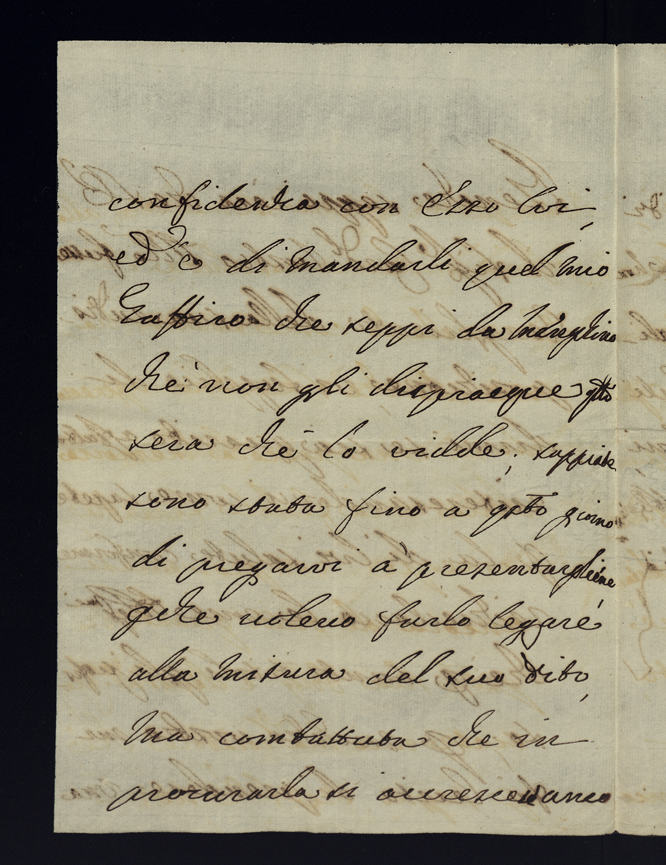 confidenza con Esso Lui,
ed è di mandarli quel mio
Zaffiro che seppi da
che non gli dispiacque qta
sera che lo vidde; sappiate
sono stata fino a qto giorno
di pregarvi a presentargliene
pche volevo farlo legare
alla misura del suo dito,
ma combattuta che in
procurarla si